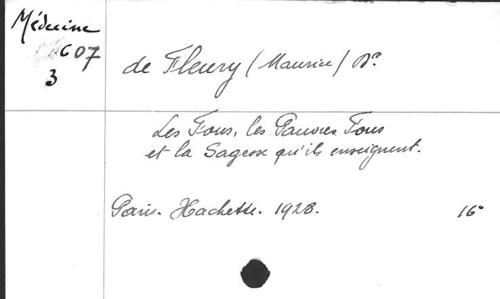 Médecine
607
3
de Fleury (Maurice) Dr
Les Fous, les Pauvres Fous
et la Sagesse qu'ils enseignent.
Paris. Hachette. 1928. 16°